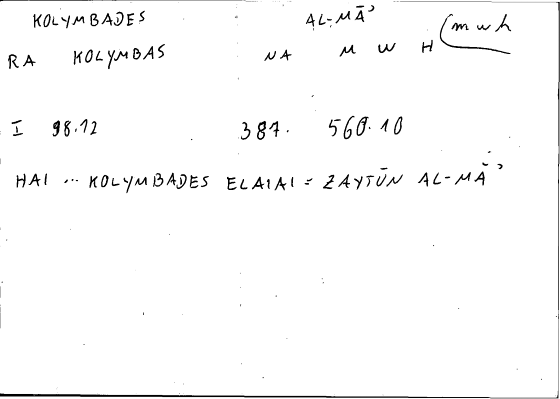 KOLYMBADES AL-MĀʾ
RA KOLYMBAS NA M W H (mwh
I 98.12 387. 560.10
HAI ... KOLYMBADES ELAIAI = ZAYTŪN AL-MĀʾ